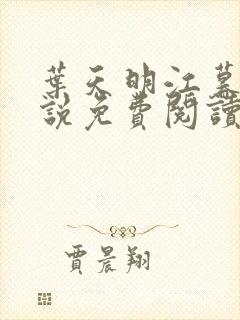 葉天明江慕
說免費閱讀
賈晨翔